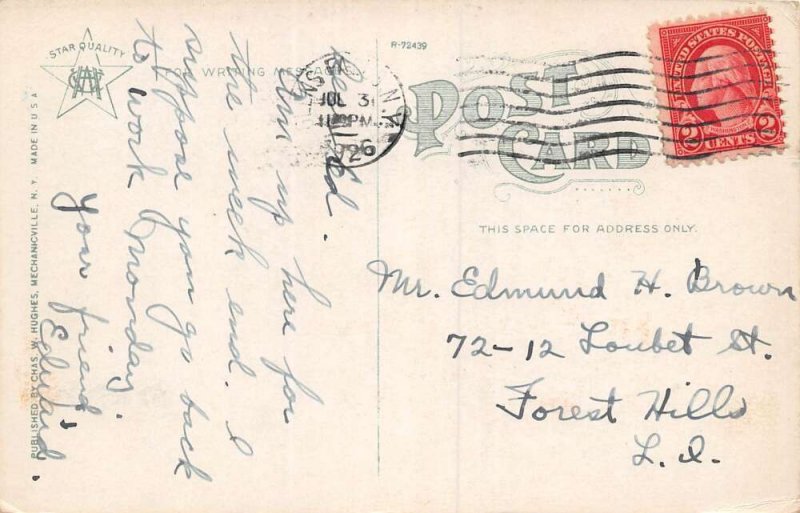 STAR QUALITY
CWH
FOR WRITING MESSAGES
R-72439
POST
CARD
JUL 31
PM
1926
N.Y.
UNITED STATES POSTAGE
2 CENTS 2
THIS SPACE FOR ADDRESS ONLY.
Mr. Edmund H. Brown
72-12 Loubet St.
Forest Hills
L. I.
Ed.
I'm up here for
the week end. I
suppose you go back
to work Monday.
Your friend,
Edward.
PUBLISHED BY CHAS. W. HUGHES, MECHANICVILLE, N. Y. MADE IN U S A